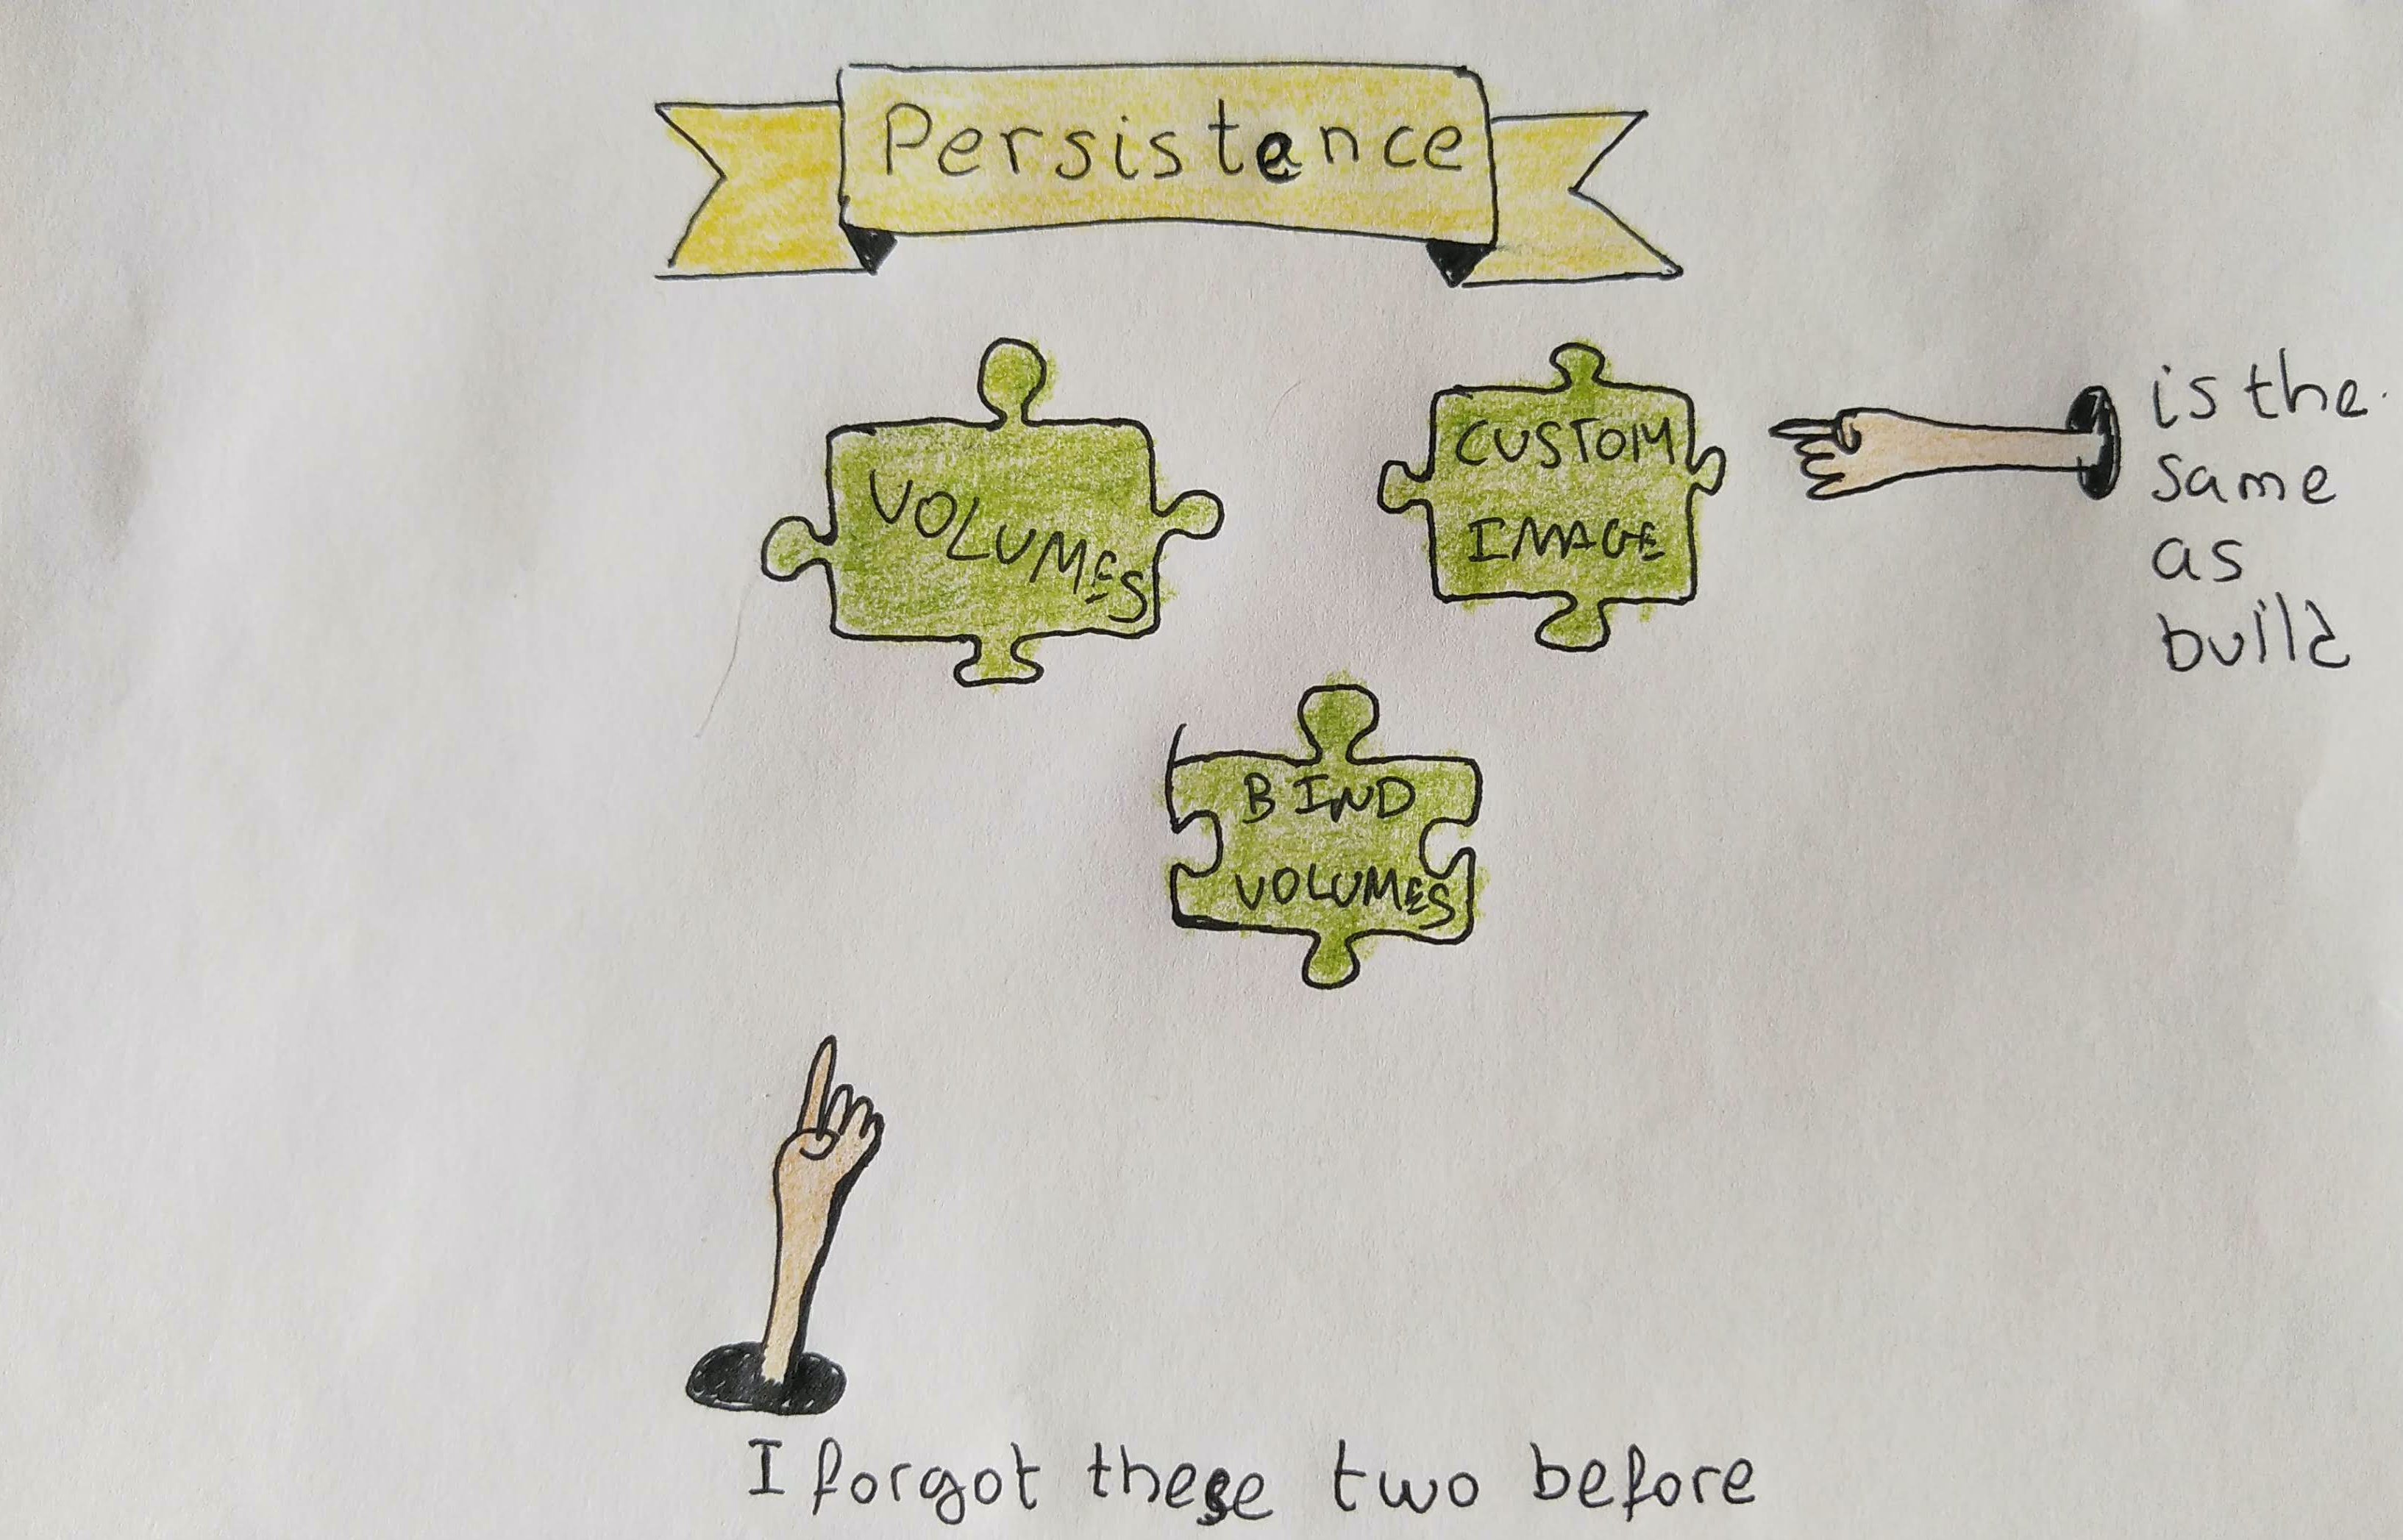 Persistence
VOLUMES
CUSTOM
IMAGE
is the
same
as
build
BIND
VOLUMES
I forgot these two before